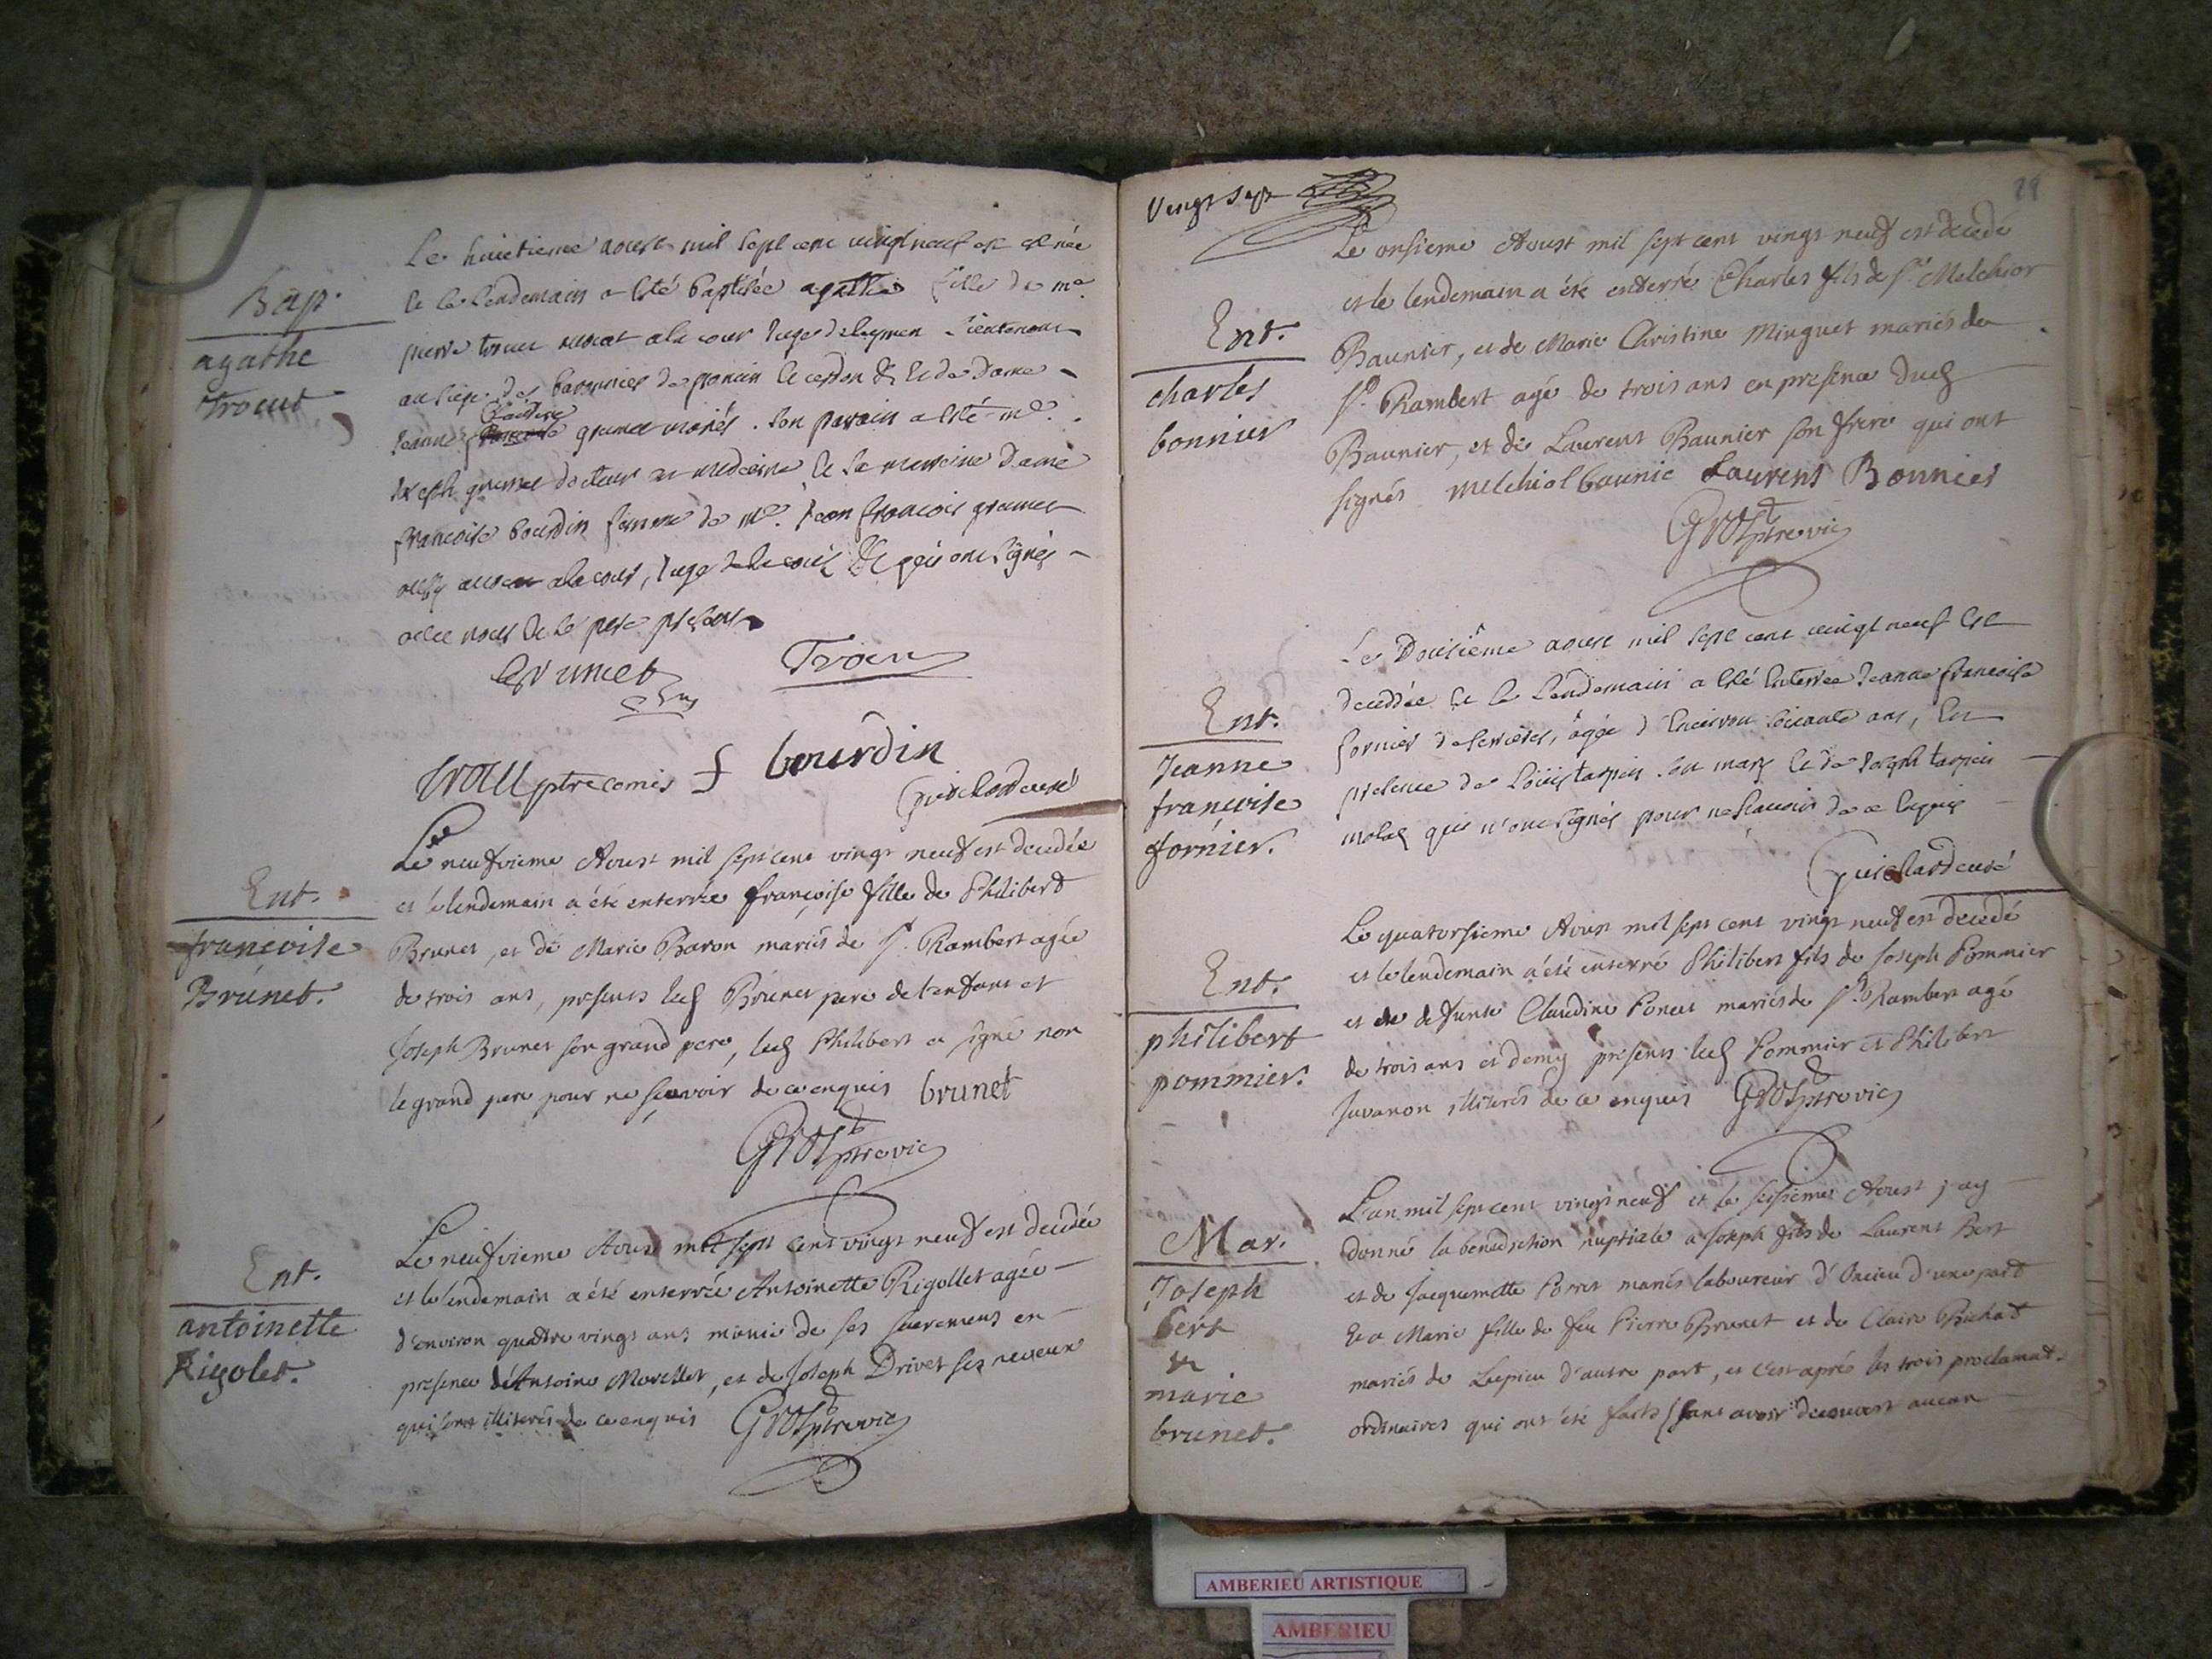 Bap.
agathe
trocut
Le huictieme aoust mil sept cent vingt neuf est née
& le lendemain a esté baptisée agathe fille de me
pierre trocut avocat a la cour juge de lieutenant
au siege des baronnies de poncin & cerdon & de dame
Jeanne claudine grumet mariés. son parain a esté me
Joseph grumet docteur en medecine & la marraine dame
francoise bourdin femme de me Jean francois grumet
aussy avocat a la cour, juge qui ont signés
avec nous & le pere present
Grumet
Trocu
trocu ptre comis f bourdin
Guichard curé
Ent.
françoise
Brunet.
Le neufvieme Aoust mil sept cent vingt neuf est decedée
et le lendemain a été enterrée françoise fille de Philibert
Brunet, et de Marie Baron mariés de St. Rambert agée
de trois ans, presents led Brunet pere de l'enfant et
Joseph Brunet son grand pere, led Philibert a signé non
le grand pere pour ne sçavoir de ce enquis brunet
Gros ptre vic
Ent.
antoinette
Rigolet.
Le neufvieme Aoust mil sept cent vingt neuf est decedée
et le lendemain a été enterrée Antoinette Rigollet agée
d'environ quattre vingt ans munie de ses sacremens en
presence d'Antoine Morellet, et de Joseph Drivet ses neveux
qui sont illiterés de ce enquis Gros ptre vic
Vingt sept
28
Ent.
charles
bonnier
Le onsieme Aoust mil sept cent vingt neuf est decedé
et le lendemain a été enterré Charles fils de Sr. Melchior
Baunier, et de Marie Christine Minguet mariés de
St. Rambert agé de trois ans en presence dud
Baunier, et de Laurent Baunier son frere qui ont
signés melchiol baunie Laurens Bonnier
Gros ptre vic
Ent.
Jeanne
françoise
fornier.
Le Douzieme aoust mil sept cent vingt neuf est
decedée & le lendemain a esté enterrée Jeanne francoise
fornier de serrieres, agée d'environ soixante ans, en
presence de Louis tarpin son mary & de Joseph tarpin
qui n'ont signés pour ne sçavoir de ce enquis
Guichard curé
Ent.
philibert
pommier.
Le quatorsieme Aoust mil sept cent vingt neuf est decedé
et le lendemain a été enterré Philibert fils de Joseph Pommier
et de defunte Claudine Poncet mariés de St. Rambert agé
de trois ans et demy presents led Pommier et Philibert
Juvanon illiterés de ce enquis Gros ptre vic
Mar.
Joseph
bert
&
marie
brunet.
L'an mil sept cent vingt neuf et le seisieme Aoust j'ay
donné la benediction nuptiale a Joseph fils de Laurent Bert
et de Jacquemette Poncet mariés laboureur d'Oncieu d'une part
& a Marie fille de feu Pierre Brunet et de Claire Bichat
mariés de Lupieu d'autre part, et c'est aprés les trois proclamat.
ordinaires qui ont été faits sans avoir decouvert aucun
AMBERIEU ARTISTIQUE
AMBERIEU